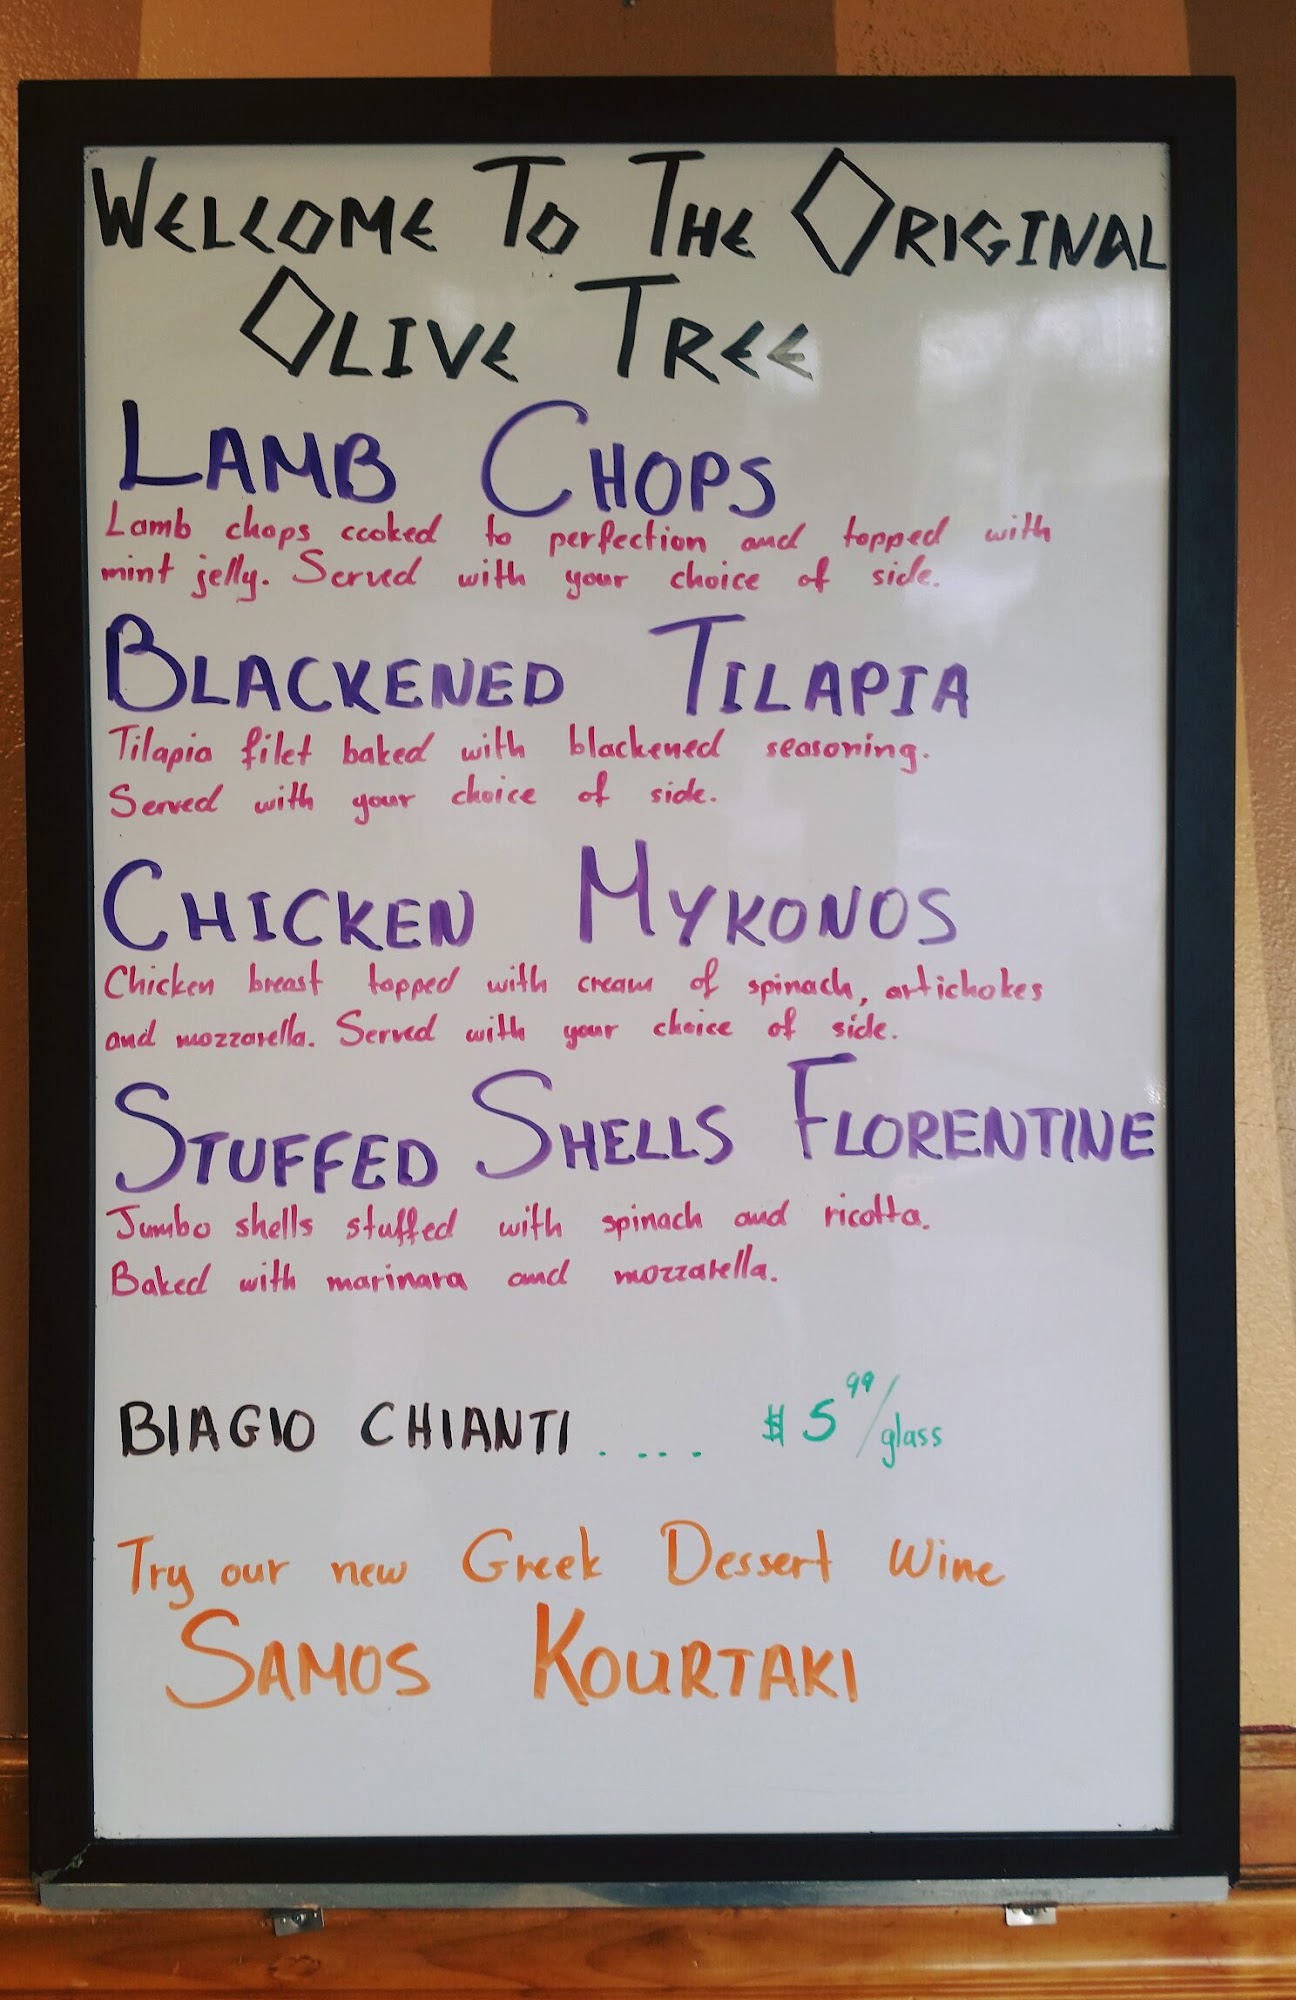 WELCOME TO THE ORIGINAL
OLIVE TREE
LAMB CHOPS
Lamb chops cooked to perfection and topped with
mint jelly. Served with your choice of side.
BLACKENED TILAPIA
Tilapia filet baked with blackened seasoning.
Served with your choice of side.
CHICKEN MYKONOS
Chicken breast topped with cream of spinach, artichokes
and mozzarella. Served with your choice of side.
STUFFED SHELLS FLORENTINE
Jumbo shells stuffed with spinach and ricotta.
Baked with marinara and mozzarella.
BIAGIO CHIANTI .... $5 99/glass
Try our new Greek Dessert Wine
SAMOS KOURTAKI